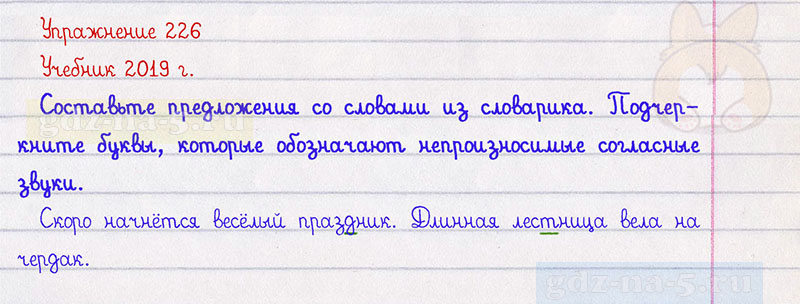 Упражнение 226
Учебник 2019 г.
Составьте предложения со словами из словарика. Подчер-
кните буквы, которые обозначают непроизносимые согласные
звуки.
Скоро начнётся весёлый праздник. Длинная лестница вела на
чердак.
gdz-na-5.ru
gdz-na-5.ru